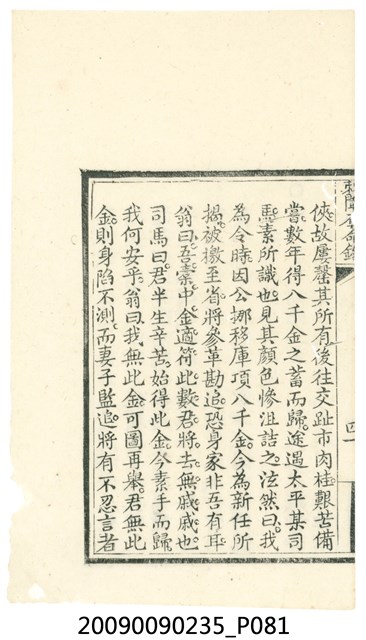 俠故屢罄其所有後往交趾市肉桂艱苦備
嘗數年得八千金之蓄而歸途遇太平某司
馬素所識也見其顏色慘沮詰之泫然曰我
為令時因公挪移庫項八千金今為新任所
揭被檄至省將參革勘追恐身家非吾有耳
翁曰吾橐中金適符此數君將去無戚戚也
司馬曰君半生辛苦始得此金今素手而歸
我何安乎翁曰我無此金可圖再舉君無此
金則身陷不測而妻子監追將有不忍言者
20090090235_P081